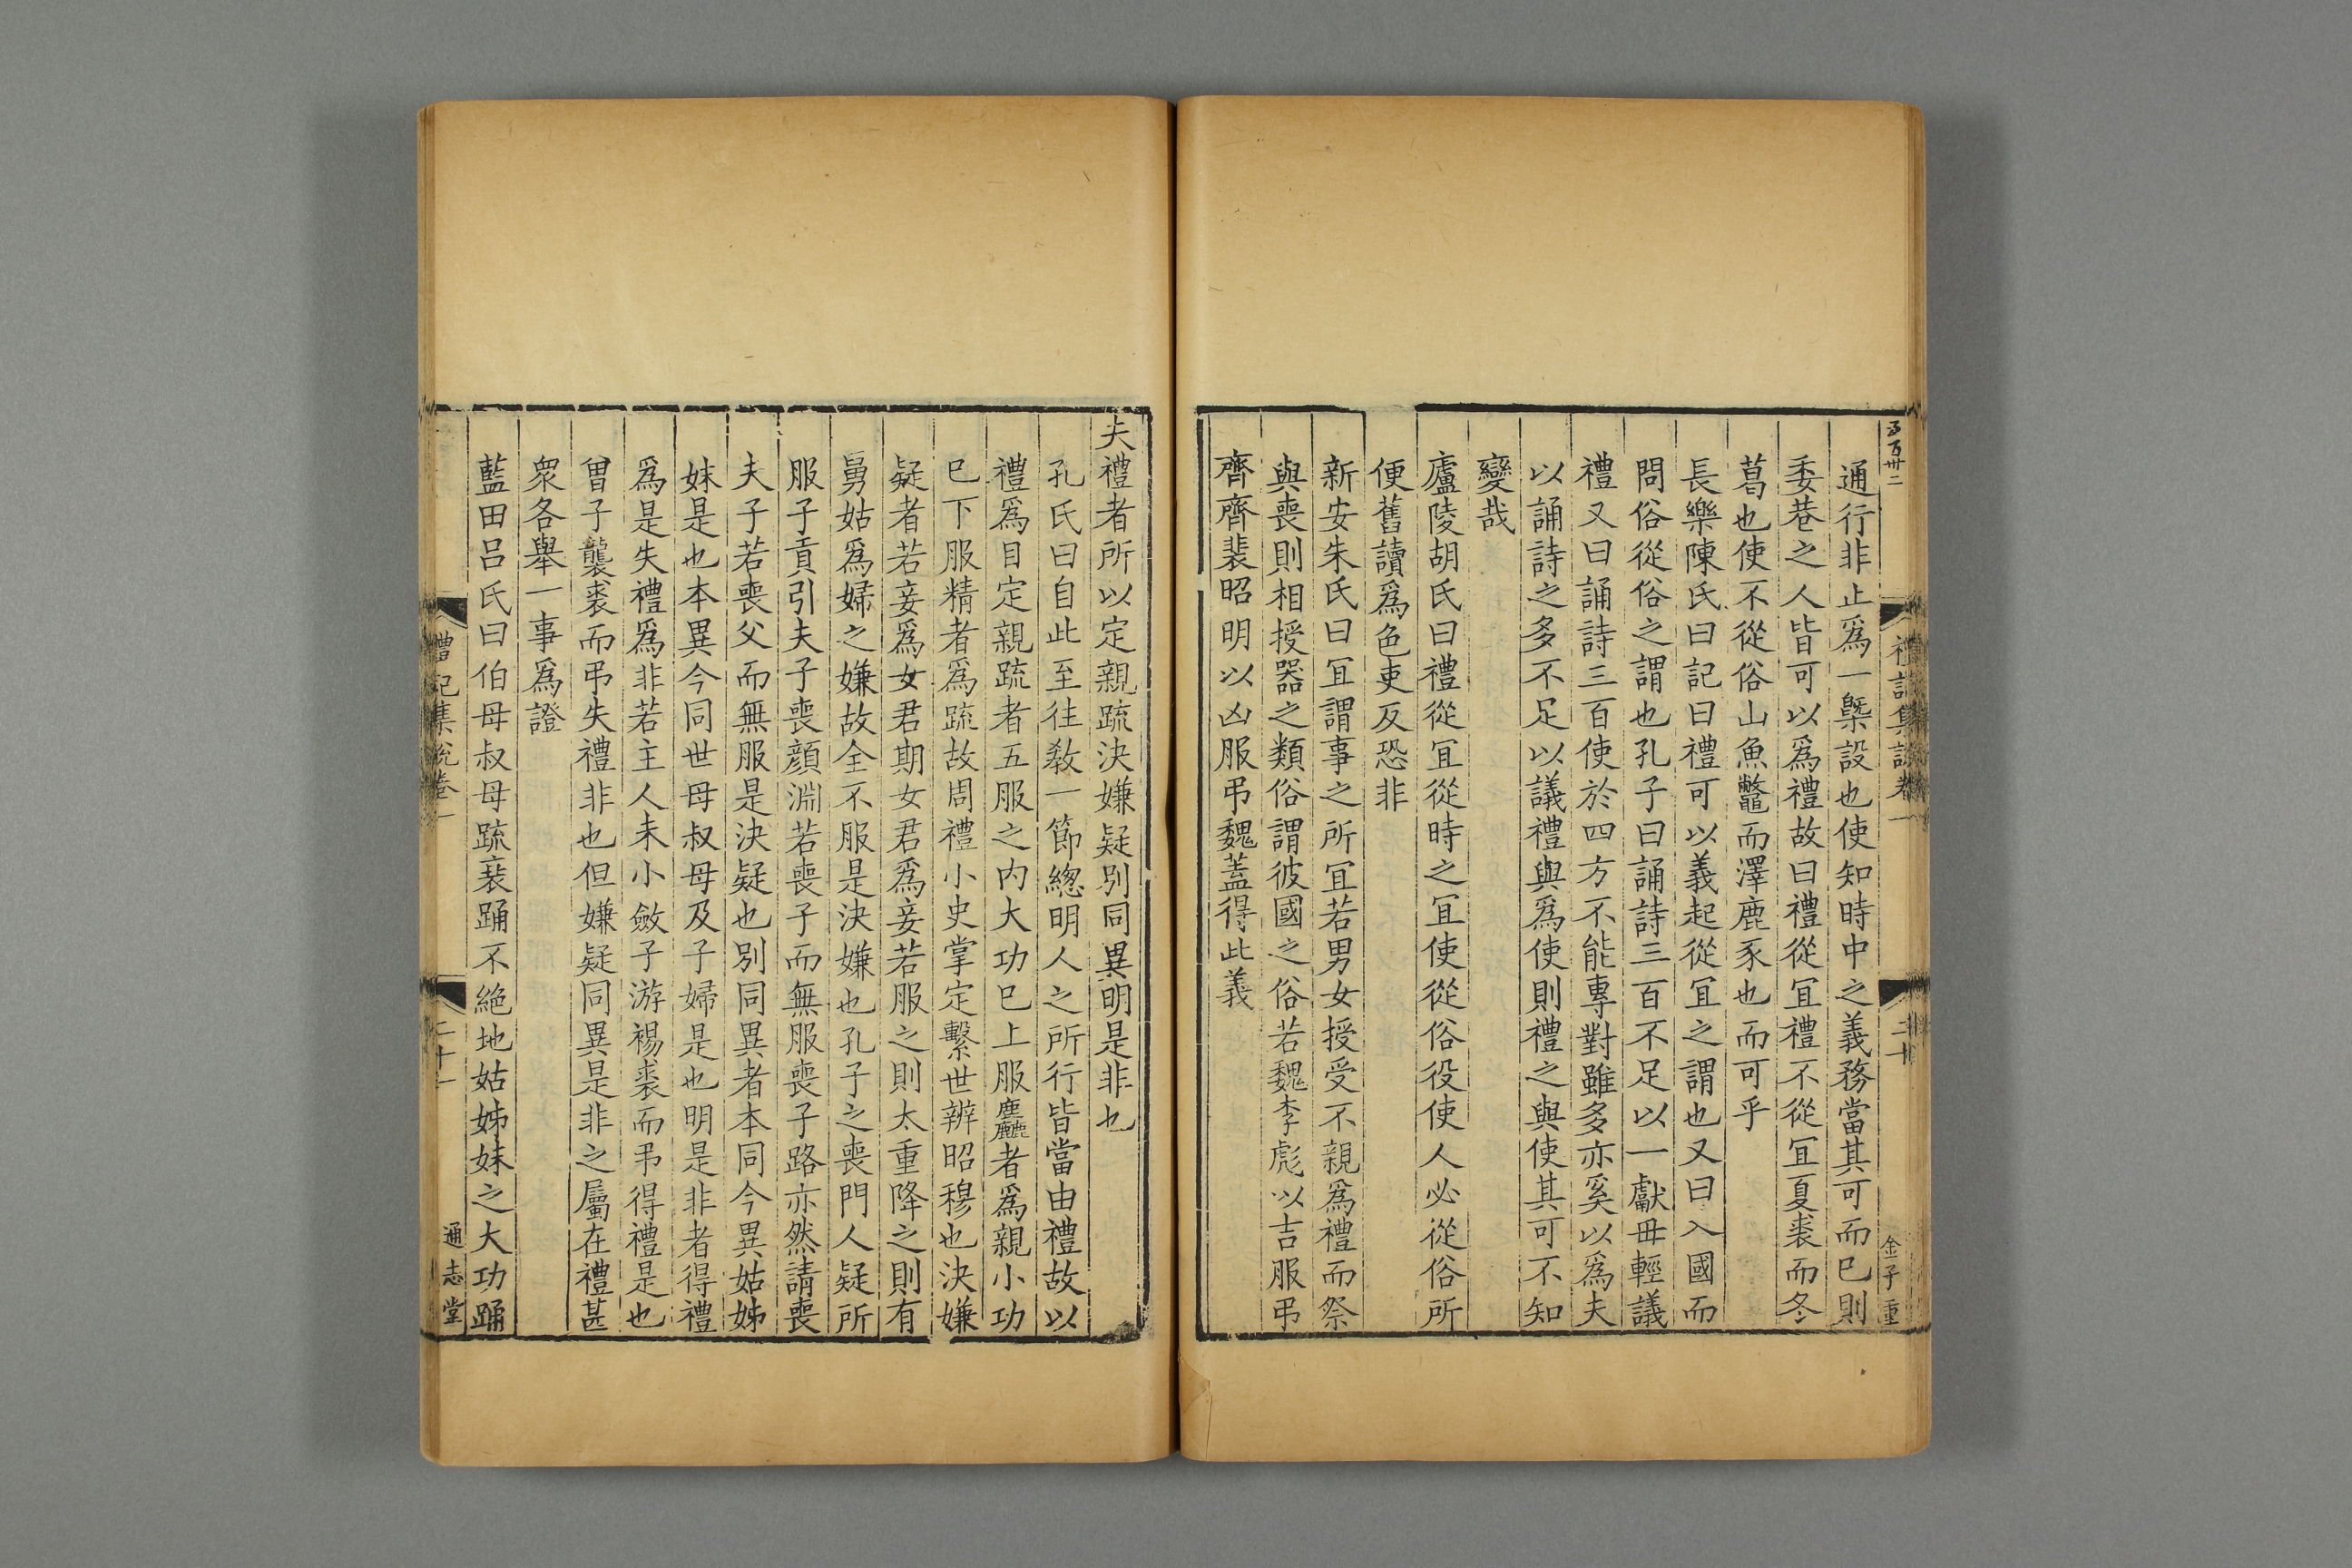 五百卅二
禮記集說卷一
二十
金子重
通行非止爲一槩設也使知時中之義務當其可而已則
委巷之人皆可以爲禮故曰禮從宜禮不從宜夏裘而冬
葛也使不從俗山魚鼈而澤鹿豕也而可乎
長樂陳氏曰記曰禮可以義起從宜之謂也又曰入國而
問俗從俗之謂也孔子曰誦詩三百不足以一獻毋輕議
禮又曰誦詩三百使於四方不能專對雖多亦奚以爲夫
以誦詩之多不足以議禮與爲使則禮之與使其可不知
變哉
廬陵胡氏曰禮從宜從時之宜使從俗役使人必從俗所
便舊讀爲色吏反恐非
新安朱氏曰宜謂事之所宜若男女授受不親爲禮而祭
與喪則相授器之類俗謂彼國之俗若魏李彪以吉服弔
齊齊裴昭明以凶服弔魏蓋得此義
夫禮者所以定親疏決嫌疑别同異明是非也
孔氏曰自此至往敎一節總明人之所行皆當由禮故以
禮爲目定親疏者五服之内大功已上服麤者爲親小功
已下服精者爲疏故周禮小史掌定繫世辨昭穆也決嫌
疑者若妾爲女君期女君爲妾若服之則太重降之則有
舅姑爲婦之嫌故全不服是決嫌也孔子之喪門人疑所
服子貢引夫子喪顔淵若喪子而無服喪子路亦然請喪
夫子若喪父而無服是決疑也别同異者本同今異姑姊
妹是也本異今同世母叔母及子婦是也明是非者得禮
爲是失禮爲非若主人未小斂子游裼裘而弔得禮是也
曾子襲裘而弔失禮非也但嫌疑同異是非之屬在禮甚
衆各舉一事爲證
藍田吕氏曰伯母叔母疏衰踊不絶地姑姊妹之大功踊
禮記集說卷一
二十一
通志堂